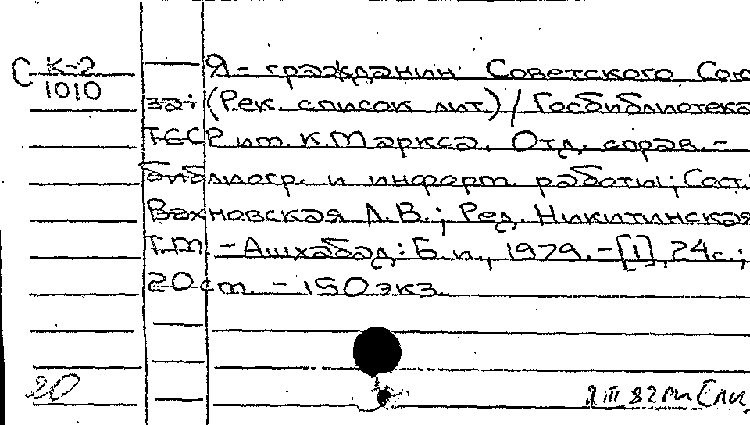 С К-2
1010
Я - гражданин Советского Сою
за: (Рек. список лит.) / Госбиблиотека
ТССР им. К. Маркса. Отд. справ.-
библиогр. и информ. работы; Сост.
Вахновская Л. В.; Ред. Никитинская
Г.М. - Ашхабад: Б. и., 1979. - [1], 24с.;
20см. - 150 экз.
80